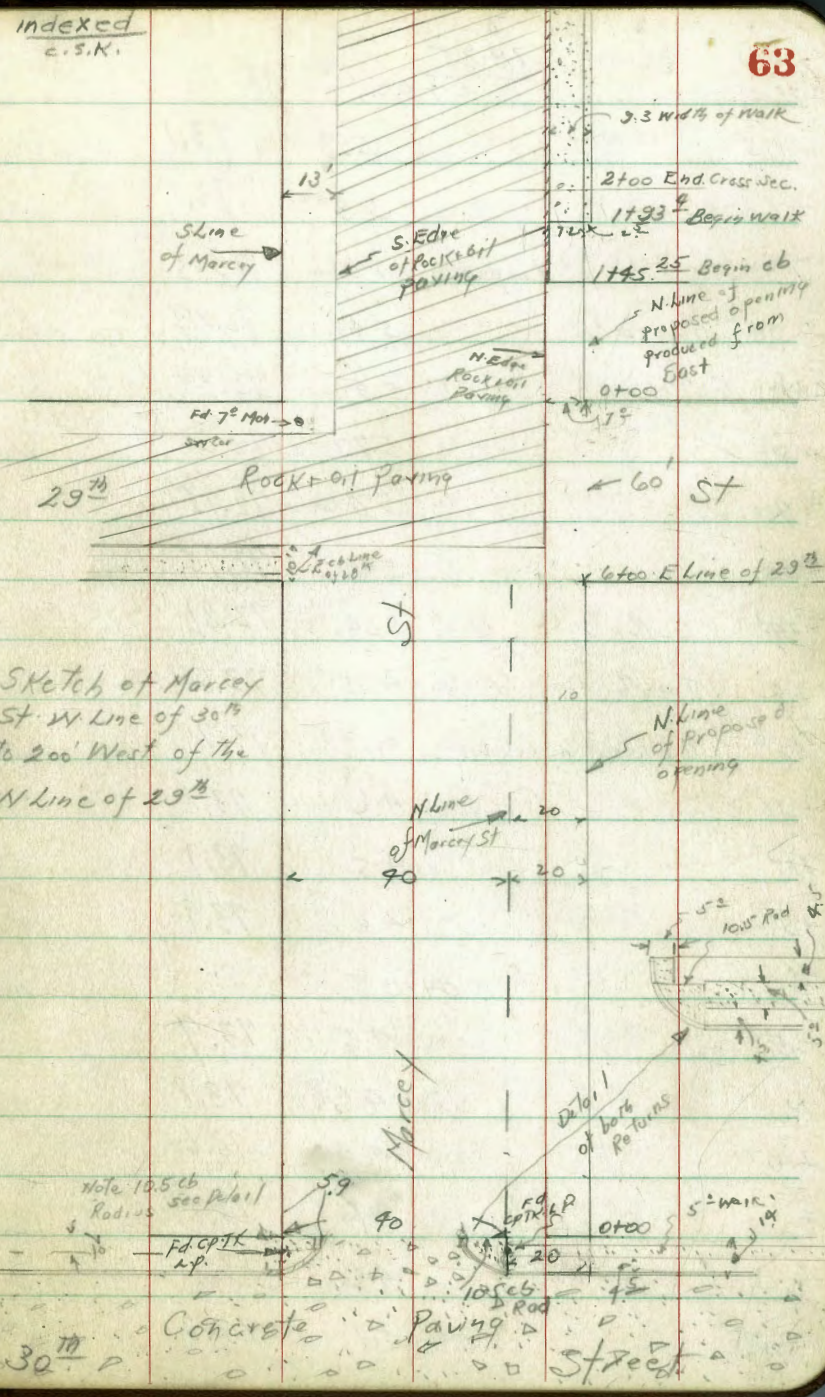 Indexed
c.s.k.
63
3.3 Width of Walk
13'
2+00 End. Cross Sec.
1+93 4 Begin Walk
S Line
of Marcey
S. Edge
of Rock & oil
Paving
1+45.25 Begin cb
N. Line of
proposed opening
produced from
East
N. Edge
Rock & oil
Paving
0+00
Fd. 7" Mon
29th
Rock & oil Paving
60'
St
6+00 E Line of 29th
St
10
Sketch of Marcey
St. W. Line of 30th
to 200' West of the
N Line of 29th
N. Line
of Proposed
opening
N Line
of Marcey St
20
40
20
5º
10.5 Rad
4.5
5º
Marcey
Detail
of both
Returns
Note 10.5 cb
Radius see Detail
5.9
40
Fd
CP TK LP
0+00
5º Walk
14
10
Fd. CP. TK
L.P.
20
10.5 cb
Rad
Concrete Paving
30th
Street